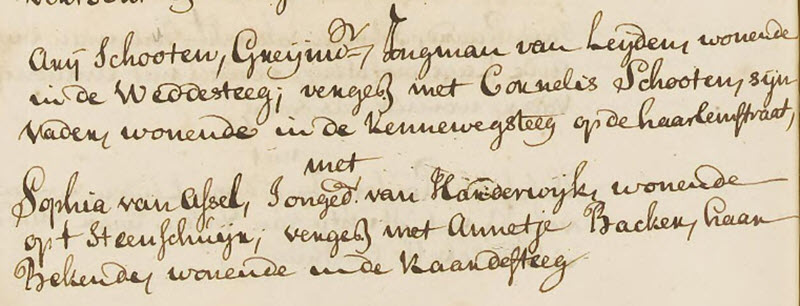 Arij Schooten, Greijnwr, Jongman van Leijden, wonende
in de Weddesteeg; vergeß met Cornelis Schooten, sijn
Vader, wonende in de Kennewegsteeg op de haarlemstraat,
met
Sophia van Assel, Jonged. van Harderwijk, wonende
op 't Steenschuijr; vergeß met Annetje Backer, haar
Bekende, wonende in de Raamdesteeg